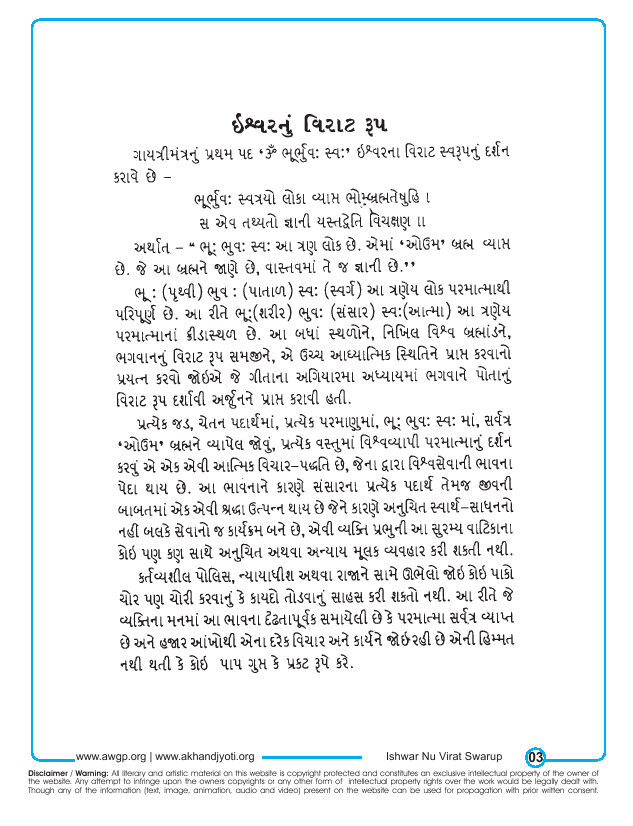 ઈશ્વરનું વિરાટ રૂપ
ગાયત્રીમંત્રનું પ્રથમ પદ ‘ૐ ભૂર્ભુવઃ સ્વઃ’ ઇશ્વરના વિરાટ સ્વરૂપનું દર્શન
કરાવે છે –
ભૂર્ભુવઃ સ્વત્રયો લોકા વ્યાપ્ત ભોમ્બ્રહ્મતેષુહિ ।
સ એવ તથ્યતો જ્ઞાની યસ્તદ્વેતિ વિચક્ષણ ॥
અર્થાત – “ ભૂઃ ભુવઃ સ્વઃ આ ત્રણ લોક છે. એમાં ‘ઓઉમ’ બ્રહ્મ વ્યાપ્ત
છે. જે આ બ્રહ્મને જાણે છે, વાસ્તવમાં તે જ જ્ઞાની છે.’’
ભૂ : (પૃથ્વી) ભુવ : (પાતાળ) સ્વઃ (સ્વર્ગ) આ ત્રણેય લોક પરમાત્માથી
પરિપૂર્ણ છે. આ રીતે ભૂઃ(શરીર) ભુવઃ (સંસાર) સ્વઃ(આત્મા) આ ત્રણેય
પરમાત્માનાં ક્રીડાસ્થળ છે. આ બધાં સ્થળોને, નિખિલ વિશ્વ બ્રહ્માંડને,
ભગવાનનું વિરાટ રૂપ સમજીને, એ ઉચ્ચ આઘ્યાત્મિક સ્થિતિને પ્રાપ્ત કરવાનો
પ્રયત્ન કરવો જોઇએ જે ગીતાના અગિયારમા અધ્યાયમાં ભગવાને પોતાનું
વિરાટ રૂપ દર્શાવી અર્જુનને પ્રાપ્ત કરાવી હતી.
પ્રત્યેક જડ, ચેતન પદાર્થમાં, પ્રત્યેક પરમાણુમાં, ભૂઃ ભુવઃ સ્વઃ માં, સર્વત્ર
‘ઓઉમ’ બ્રહ્મને વ્યાપેલ જોવું, પ્રત્યેક વસ્તુમાં વિશ્વવ્યાપી પરમાત્માનું દર્શન
કરવું એ એક એવી આત્મિક વિચાર–પદ્ધતિ છે, જેના દ્વારા વિશ્વસેવાની ભાવના
પેદા થાય છે. આ ભાવનાને કારણે સંસારના પ્રત્યેક પદાર્થ તેમજ જીવની
બાબતમાં એક એવી શ્રદ્ધા ઉત્પન્ન થાય છે જેને કારણે અનુચિત સ્વાર્થ–સાધનનો
નહીં બલકે સેવાનો જ કાર્યક્રમ બને છે, એવી વ્યક્તિ પ્રભુની આ સુરમ્ય વાટિકાના
કોઇ પણ કણ સાથે અનુચિત અથવા અન્યાય મૂલક વ્યવહાર કરી શકતી નથી.
કર્તવ્યશીલ પોલિસ, ન્યાયાધીશ અથવા રાજાને સામે ઊભેલો જોઇ કોઇ પાકો
ચોર પણ ચોરી કરવાનું કે કાયદો તોડવાનું સાહસ કરી શકતો નથી. આ રીતે જે
વ્યક્તિના મનમાં આ ભાવના દૃઢતાપૂર્વક સમાયેલી છે કે પરમાત્મા સર્વત્ર વ્યાપ્ત
છે અને હજાર આંખોથી એના દરેક વિચાર અને કાર્યને જોઇ રહી છે એની હિમ્મત
નથી થતી કે કોઇ પાપ ગુપ્ત કે પ્રકટ રૂપે કરે.
www.awgp.org | www.akhandjyoti.org Ishwar Nu Virat Swarup 03
Disclaimer / Warning: All literary and artistic material on this website is copyright protected and constitutes an exclusive intellectual property of the owner of
the website. Any attempt to infringe upon the owners copyrights or any other form of intellectual property rights over the work would be legally dealt with.
Though any of the information (text, image, animation, audio and video) present on the website can be used for propagation with prior written consent.